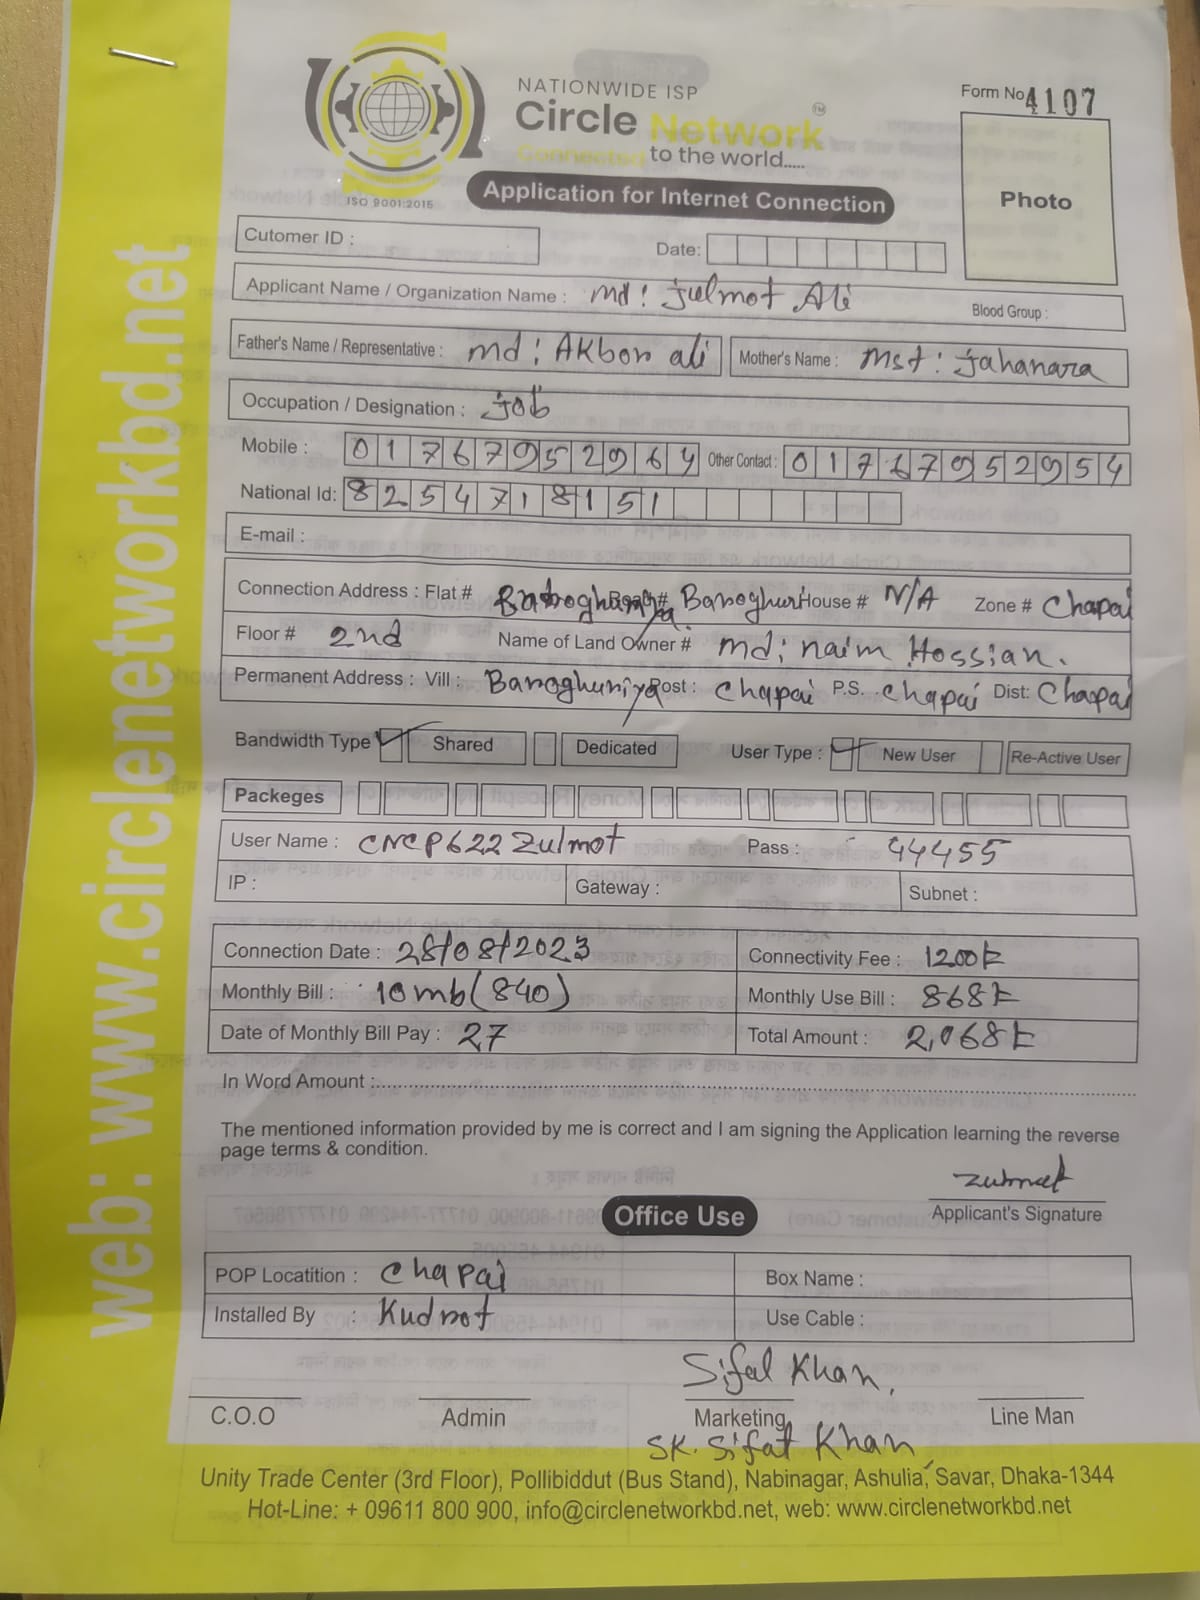 NATIONWIDE ISP
Circle Network ™
Connected to the world.....
ISO 9001:2015
Form No 4107
Photo
Application for Internet Connection
Cutomer ID :
Date:
Applicant Name / Organization Name : md: Julmot Ali Blood Group :
Father's Name / Representative : md: AKbor ali Mother's Name : Mst: Jahanara
Occupation / Designation : Job
Mobile : 01767952964 Other Contact : 01767952954
National Id: 8254718151
E-mail :
Connection Address : Flat # Road # House # N/A Zone # Chapai
Floor # 2nd Name of Land Owner # md: naim Hossian.
Permanent Address : Vill : Baroghuriya Post : Chapai P.S. Chapai Dist: Chapai
Bandwidth Type Shared Dedicated User Type : New User Re-Active User
Packeges
User Name : CNCP622Zulmot Pass : 44455
IP : Gateway : Subnet :
Connection Date : 28/08/2023 Connectivity Fee : 1200
Monthly Bill : 10mb(840) Monthly Use Bill : 868
Date of Monthly Bill Pay : 27 Total Amount : 2,068
In Word Amount :
The mentioned information provided by me is correct and I am signing the Application learning the reverse
page terms & condition.
Zulmot
Applicant's Signature
Office Use
POP Locatition : Chapai Box Name :
Installed By : Kudrot Use Cable :
Sifat Khan,
C.O.O Admin Marketing Line Man
SK. Sifat Khan
Unity Trade Center (3rd Floor), Pollibiddut (Bus Stand), Nabinagar, Ashulia, Savar, Dhaka-1344
Hot-Line: + 09611 800 900, info@circlenetworkbd.net, web: www.circlenetworkbd.net
web: www.circlenetworkbd.net